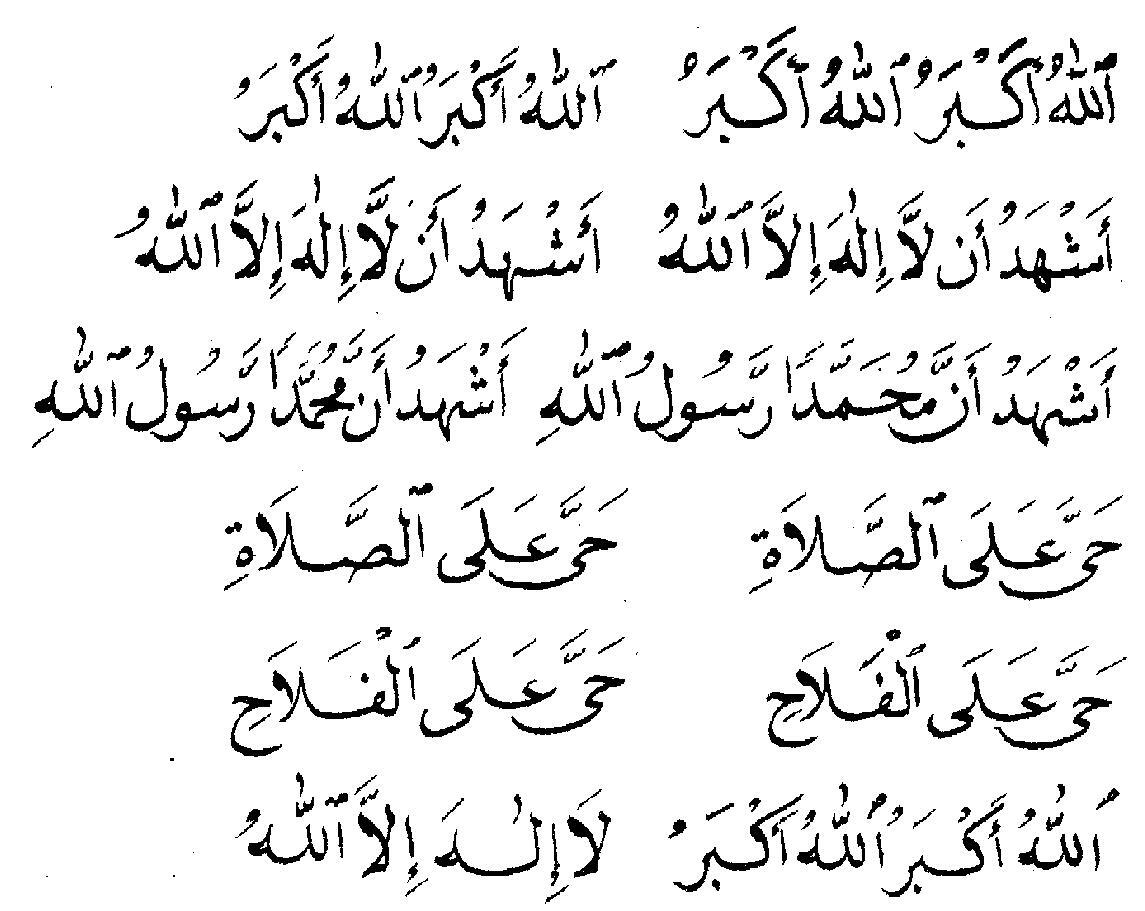 ٱللّٰهُ أَكْبَرُ ٱللّٰهُ أَكْبَرُ ٱللّٰهُ أَكْبَرُ ٱللّٰهُ أَكْبَرُ
أَشْهَدُ أَن لَّا إِلٰهَ إِلَّا ٱللّٰهُ أَشْهَدُ أَن لَّا إِلٰهَ إِلَّا ٱللّٰهُ
أَشْهَدُ أَنَّ مُحَمَّدًا رَّسُولُ ٱللّٰهِ أَشْهَدُ أَنَّ مُحَمَّدًا رَّسُولُ ٱللّٰهِ
حَىَّ عَلَى ٱلصَّلَاةِ حَىَّ عَلَى ٱلصَّلَاةِ
حَىَّ عَلَى ٱلْفَلَاحِ حَىَّ عَلَى ٱلْفَلَاحِ
ٱللّٰهُ أَكْبَرُ ٱللّٰهُ أَكْبَرُ لَا إِلٰهَ إِلَّا ٱللّٰهُ